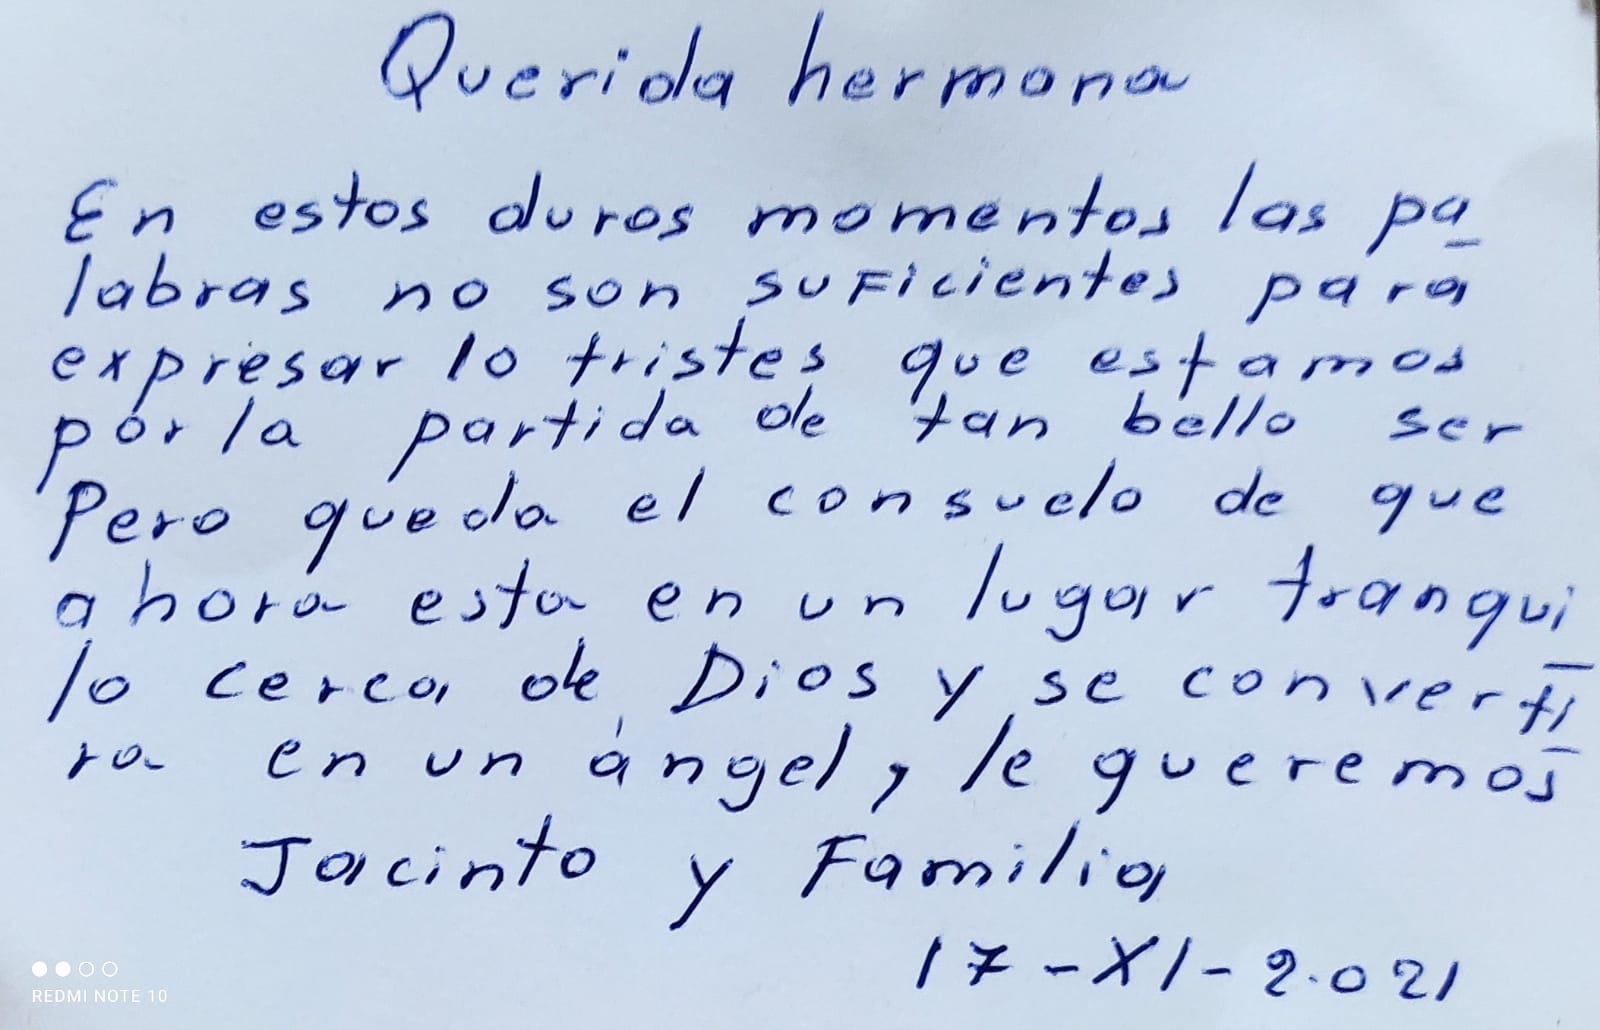 Querida hermana
En estos duros momentos las pa
labras no son suficientes para
expresar lo tristes que estamos
por la partida de tan bello ser
Pero queda el consuelo de que
ahora esta en un lugar tranqui
lo cerca de Dios y se converti
ra en un ángel, le queremos
Jacinto y Familia
17-XI-2.021
REDMI NOTE 10